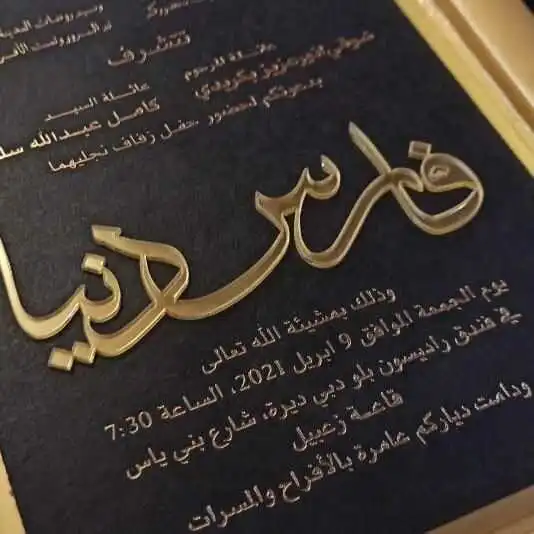 تتشرف
عائلة المرحوم
عائلة السيد
كامل عبدالله
بدعوتكم لحضور حفل زفاف نجليهما
فارس دنيا
وذلك بمشيئة الله تعالى
يوم الجمعة الموافق 9 ابريل 2021، الساعة 7:30
في فندق راديسون بلو دبي ديرة، شارع بني ياس
قاعة زعبيل
ودامت دياركم عامرة بالأفراح والمسرات